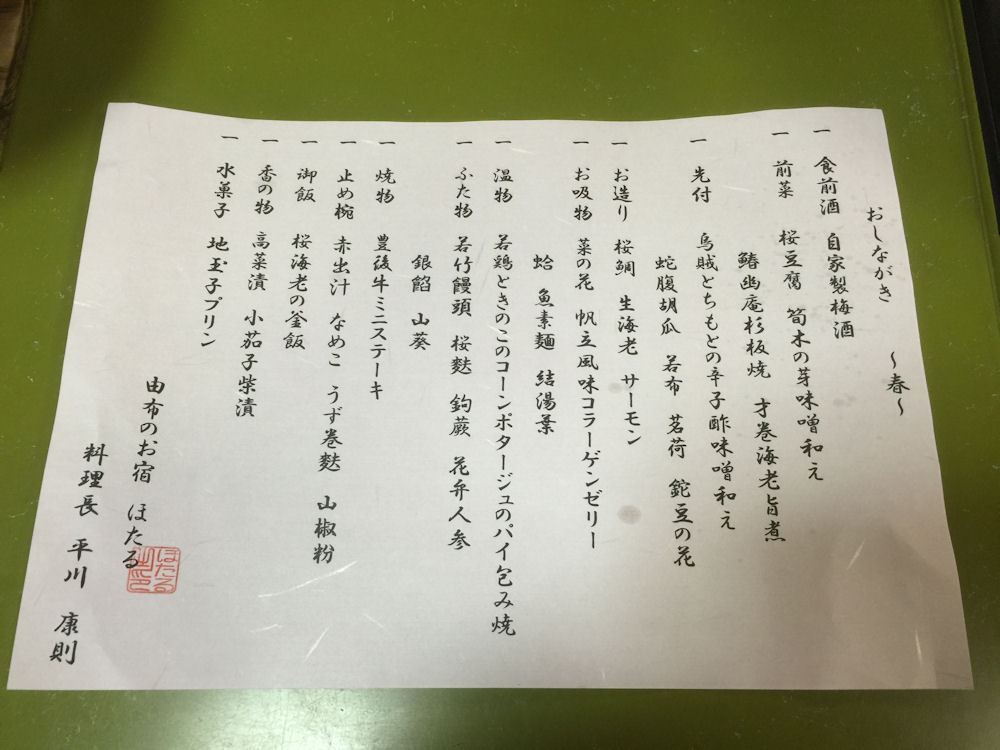 おしながき ～春～
一 食前酒 自家製梅酒
一 前菜 桜豆腐 筍木の芽味噌和え
鰆幽庵杉板焼 才巻海老旨煮
一 先付 烏賊とちもとの辛子酢味噌和え
蛇腹胡瓜 若布 茗荷 鉈豆の花
一 お造り 桜鯛 生海老 サーモン
一 お吸物 菜の花 帆立風味コラーゲンゼリー
蛤 魚素麺 結湯葉
一 温物 若鶏ときのこのコーンポタージュのパイ包み焼
一 ふた物 若竹饅頭 桜麩 鈎蕨 花弁人参
銀餡 山葵
一 焼物 豊後牛ミニステーキ
一 止め椀 赤出汁 なめこ うず巻麩 山椒粉
一 御飯 桜海老の釜飯
一 香の物 高菜漬 小茄子柴漬
一 水菓子 地玉子プリン
由布のお宿 ほたる
料理長 平川 康則
ほたる